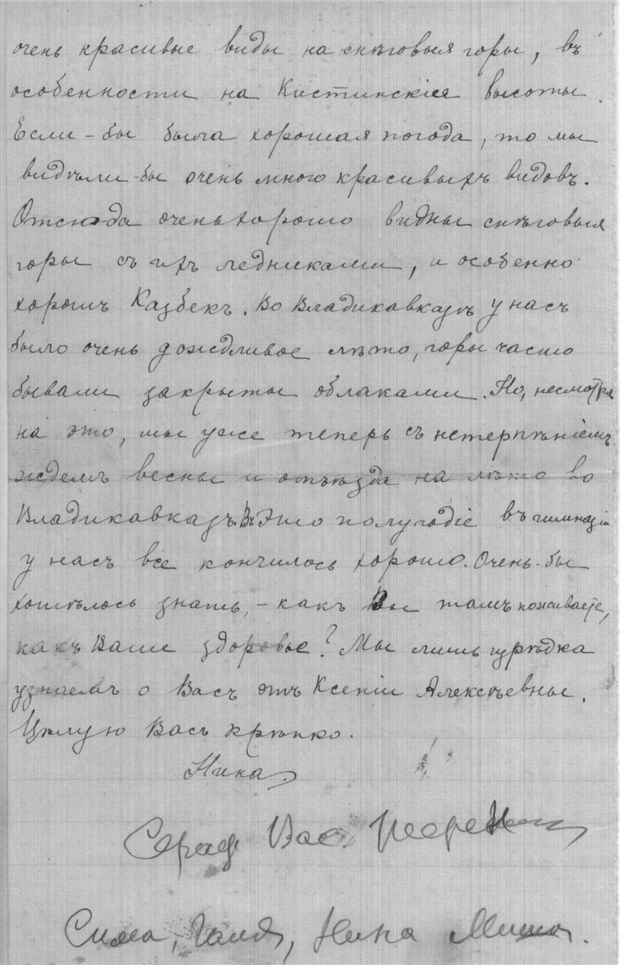 очень красивые виды на снѣговыя горы, въ
особенности на Кистинскіе высоты.
Если-бы была хорошая погода, то мы
видѣли-бы очень много красивыхъ видовъ.
Отсюда очень хорошо видны снѣговыя
горы съ ихъ ледниками, и особенно
хорошъ Казбекъ. Во Владикавказѣ у насъ
было очень дождливое лѣто, горы часто
бывали закрыты облаками. Но, несмотря
на это, мы уже теперь съ нетерпѣніемъ
ждемъ весны и отъѣзда на лѣто во
Владикавказъ. Въ это полугодіе въ гимназіи
у насъ все кончилось хорошо. Очень-бы
хотѣлось знать, - какъ Вы тамъ поживаете,
какъ Ваше здоровье? Мы лишь изрѣдка
узнаемъ о Васъ отъ Ксеніи Алексѣевны.
Цѣлую Васъ крѣпко.
Нина
Вас.
Сима, Галя, Нина